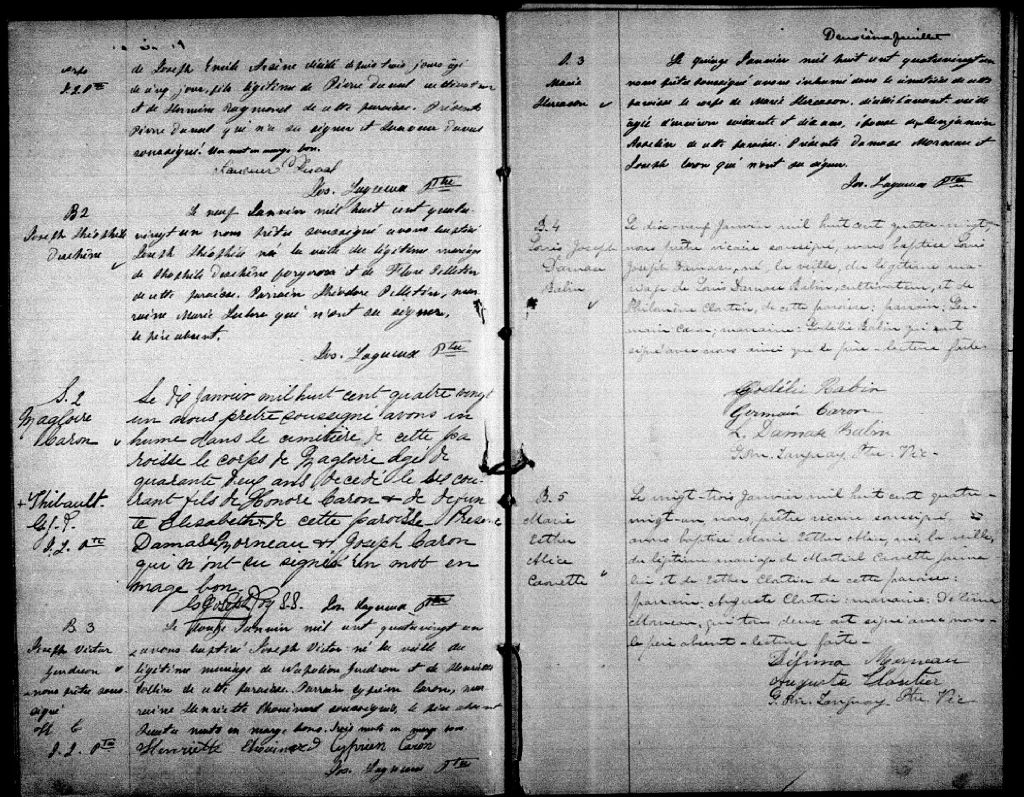 de Joseph Emile Arsène décédé depuis trois jours âgé
de cinq jours, fils légitime de Pierre Duval cultivateur
et de Hermine Raymond de cette paroisse. Présents
Pierre Duval qui n'a su signer et Duval
soussigné. Un mot en marge bon.
Duval
Jos. Lagueux Ptre
B 2
Joseph Théophile
Deschêne
Le neuf Janvier mil huit cent quatre
vingt un nous prêtre soussigné avons baptisé
Joseph Théophile né la veille du légitime mariage
de Théophile Deschêne forgeron et de Flore Pelletier
de cette paroisse. Parrain Théodore Pelletier, mar
raine Marie qui n'ont su signer,
le père absent.
Jos. Lagueux Ptre
S. 2
Magloire
Caron
Le dix janvier mil huit cent quatre vingt
un nous pretre soussigné avons in
humé dans le cimitière de cette pa
roisse le corps de Magloire agé de
quarante deux ans decedé le six cou
rant fils de Honoré Caron & de defun
te Elisabeth + de cette paroisse Present
Damase Morneau & Joseph Caron
qui n'ont su signés un mot en
marge bon
+ Thibault
J. L. Ptre
Joseph Roy Jos. Lagueux Ptre
B. 3
Joseph Victor
Gendron
+ nous prêtre sous
signé
J. L. Ptre
Le douze Janvier mil cent quatre vingt un
+ avons baptisé Joseph Victor né la veille du
légitime mariage de Napoléon Gendron et de Henriette
de cette paroisse. Parrain Cyprien Caron, mar
raine Henriette Chouinard soussignés, le père absent
mots en marge bons. trois mots en marge bons
Henriette Chouinard Cyprien Caron
Jos. Lagueux Ptre
Deuxième feuillet
S. 3
Marie
Le quinze Janvier mil huit cent quatrevingt un
nous prêtre soussigné avons inhumé dans le cimetière de cette
paroisse le corps de Marie décédée
agée d'environ soixante et dix ans, épouse de Benjamin
Asselin de cette paroisse. Présents Damase Morneau et
Joseph Caron qui n'ont su signer.
Jos. Lagueux Ptre
B. 4
Louis Joseph
Damase
Babin
Le dix neuf Janvier mil huit cent quatre-vingt-
nous prêtre vicaire soussigné, avons baptisé Louis
Joseph Damase, né, la veille, du légitime ma-
riage de Louis Damase Babin, cultivateur, et de
Philomène Cloutier, de cette paroisse; parrain, Ger-
main Caron; marraine: Godélie Babin qui ont
signé avec nous ainsi que le père - lecture faite
Godélie Babin
Germain Caron
L. Damase Babin
Languay Ptre. Vic-
B. 5
Marie
Esther
Alice
Caouette
Le vingt-trois Janvier mil huit cent quatre-
vingt-un nous, prêtre vicaire soussigné
avons baptisé Marie Esther Alice, née, la veille,
du légitime mariage de Martial Caouette
et de Esther Cloutier de cette paroisse;
parrain, Auguste Cloutier; marraine: Défima
Morneau, qui tous deux ont signé avec nous-
le père absent - lecture faite -
Défima Morneau
Auguste Cloutier
Languay Ptre. Vic